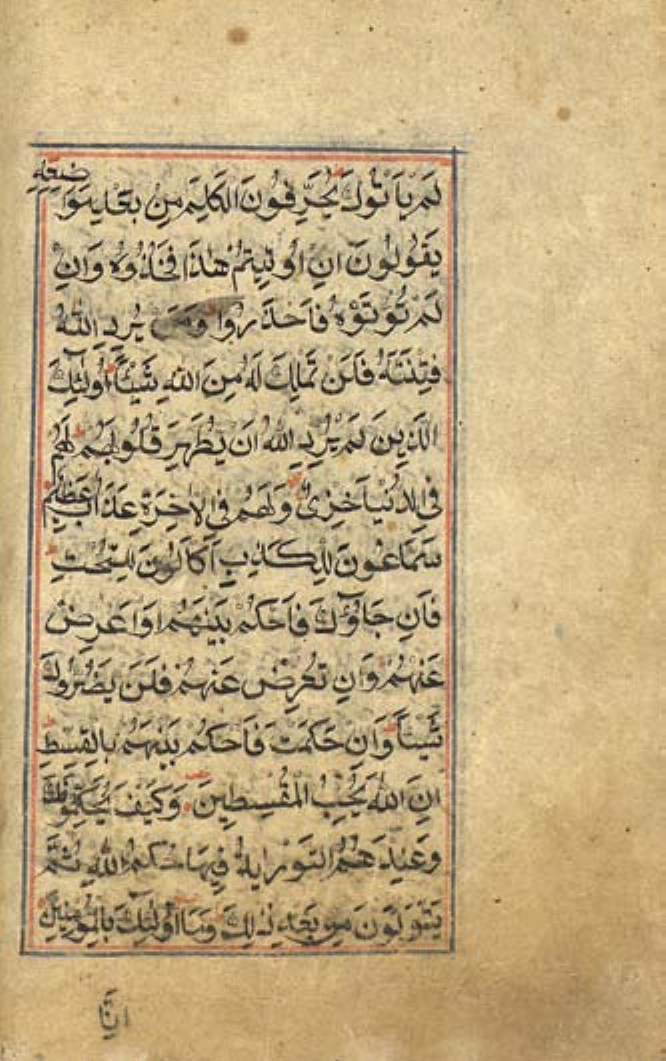 لَمْ يَأتُوكَ يُحَرِّفُونَ الكَلِمَ مِن بَعدِ مَوَاضِعِهِ
يَقُولُونَ اِن اُوتِيتُم هٰذَا فَخُذُوهُ وَاِن
لَمْ تُؤتَوْهُ فَاحْذَرُوا وَمَن يُرِدِ اللهُ
فِتنَتَهُ فَلَن تَملِكَ لَهُ مِنَ اللهِ شَيئًا اُولٰئِكَ
الَّذِينَ لَم يُرِدِ اللهُ اَن يُطَهِّرَ قُلُوبَهُم لَهُم
فِى الدُّنيَا خِزىٌ وَلَهُم فِى الاٰخِرَةِ عَذَابٌ عَظِيمٌ
سَمَّاعُونَ لِلكَذِبِ اَكَّالُونَ لِلسُّحتِ
فَاِن جَاؤُكَ فَاحكُم بَينَهُم اَوْ اَعرِض
عَنهُم وَاِن تُعرِض عَنهُم فَلَن يَضُرُّوكَ
شَيئًا وَاِن حَكَمتَ فَاحكُم بَينَهُم بِالقِسطِ
اِنَّ اللهَ يُحِبُّ المُقسِطِينَ وَكَيفَ يُحَكِّمُونَكَ
وَعِندَهُمُ التَّورٰيةُ فِيهَا حُكمُ اللهِ ثُمَّ
يَتَوَلَّونَ مِن بَعدِ ذٰلِكَ وَمَا اُولٰئِكَ بِالمُؤمِنِينَ
اِنَّا